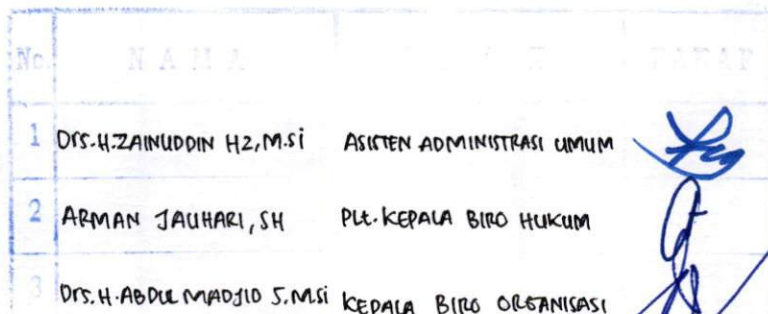 No. N A M A PARAF
1 Drs.H.ZAINUDDIN HZ, M.Si ASISTEN ADMINISTRASI UMUM
2 ARMAN JAUHARI, SH Plt. KEPALA BIRO HUKUM
3 Drs.H.ABDUL MADJID S.M.Si KEPALA BIRO ORGANISASI